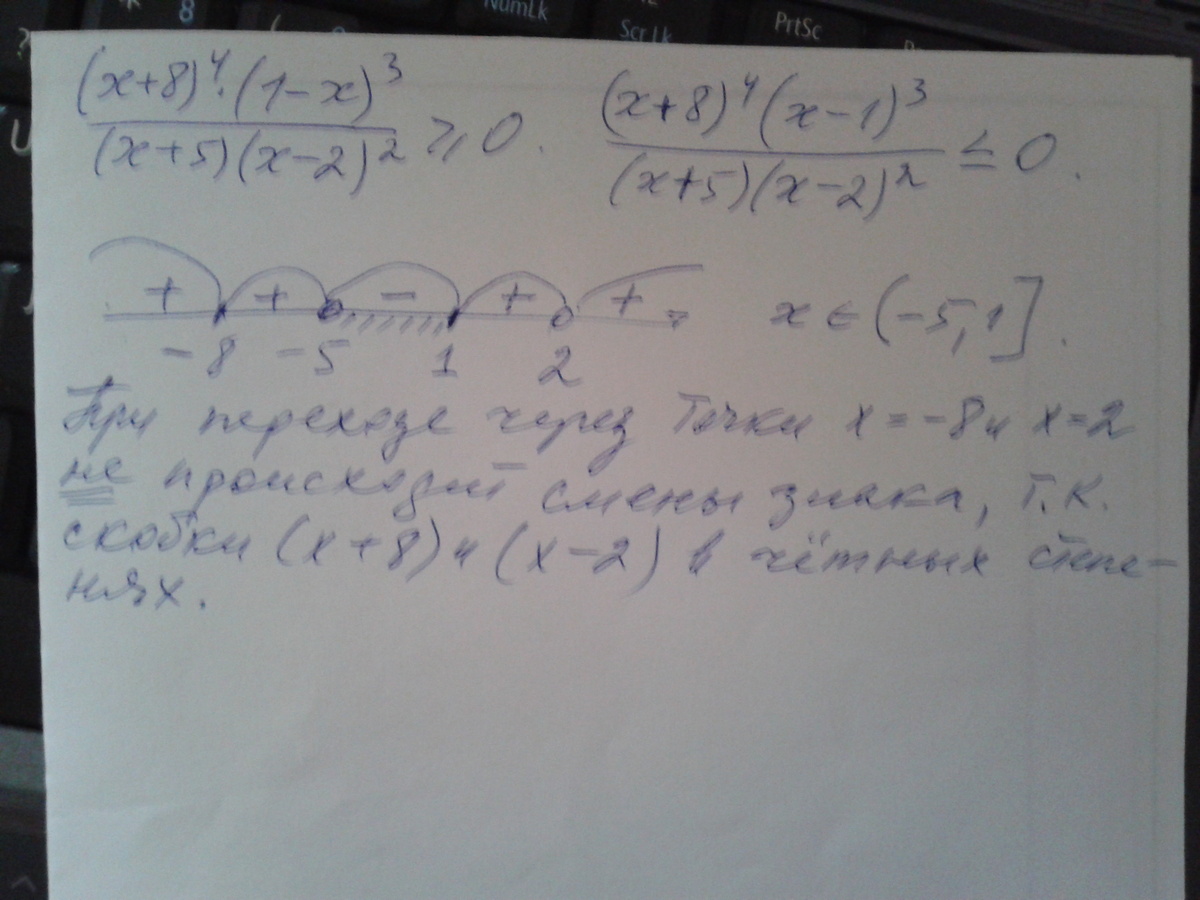 8 NumLk
Scr Lk PrtSc
(x+8)⁴·(1-x)³ / (x+5)(x-2)² ≥ 0. (x+8)⁴(x-1)³ / (x+5)(x-2)² ≤ 0.
+ + - + +
-8 -5 1 2 x ∈ (-5,1].
При переходе через точки x=-8 и x=2
не происходит смены знака, т.к.
скобки (x+8) и (x-2) в чётных степе-
нях.